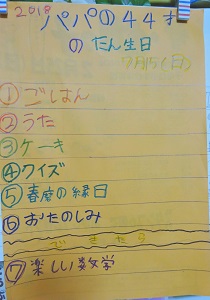 2018
パパの44才
のたん生日
7月15(日)
①ごはん
②うた
③ケーキ
④クイズ
⑤春磨の縁日
⑥おたのしみ
できたら
⑦楽しい数学